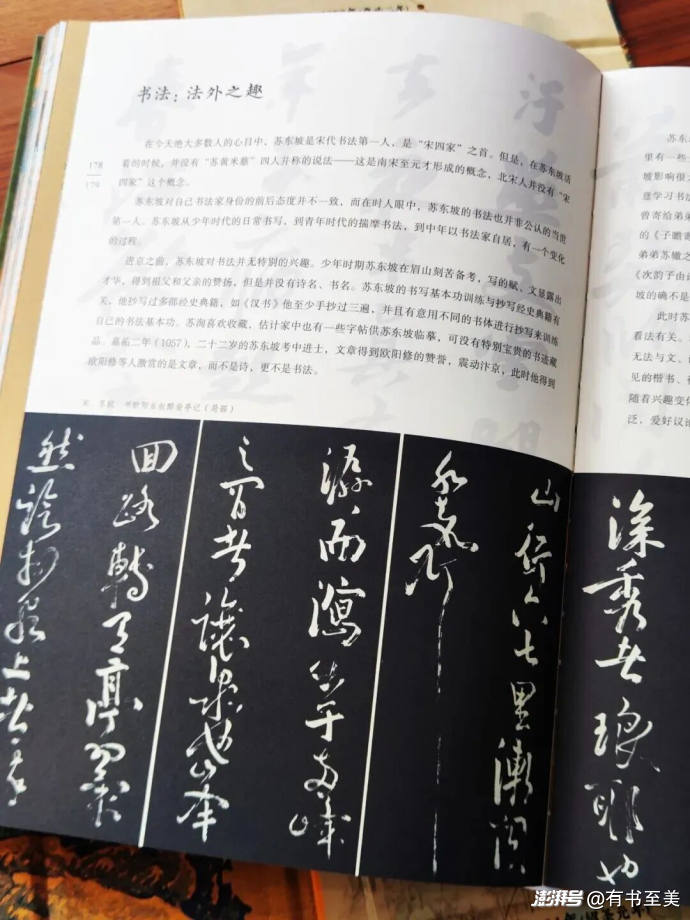 书法：法外之趣
178
179
在今天绝大多数人的心目中，苏东坡是宋代书法第一人，是“宋四家”之首。但是，在苏东坡活
着的时候，并没有“苏黄米蔡”四人并称的说法——这是南宋至元才形成的概念，北宋人并没有“宋
四家”这个概念。
苏东坡对自己书法家身份的前后态度并不一致，而在时人眼中，苏东坡的书法也并非公认的当世
第一人。苏东坡从少年时代的日常书写，到青年时代的揣摩书法，到中年以书法家自居，有一个变化
的过程。
进京之前，苏东坡对书法并无特别的兴趣。少年时期苏东坡在眉山刻苦备考，写的赋、文显露出
才华，得到祖父和父亲的赞扬，但是并没有诗名、书名。苏东坡的书写基本功训练与抄写经史典籍有
关，他抄写过多部经史典籍，如《汉书》他至少手抄过三遍，并且有意用不同的书体进行抄写来训练
自己的书法基本功。苏洵喜欢收藏，估计家中也有一些字帖供苏东坡临摹，可没有特别宝贵的书迹藏
品。嘉祐二年（1057），二十二岁的苏东坡考中进士，文章得到欧阳修的赞誉，震动汴京，此时他得到
欧阳修等人激赏的是文章，而不是诗，更不是书法。
宋 苏轼 书欧阳永叔醉翁亭记（局部）
深秀者琅耶也
山行六七里渐闻
水声
潺而泻出于两峰
之间者酿泉也峰
回路转有亭翼
然临于泉上者
苏东
里有一些
坡影响很大
意学习书法
曾寄给弟弟
的《子瞻寄
弟弟苏辙之
《次韵子由论
坡的确不是
此时苏
看法有关。
无法与文、
见的楷书、
随着兴趣变化
泛，爱好议论
澎湃号@有书至美